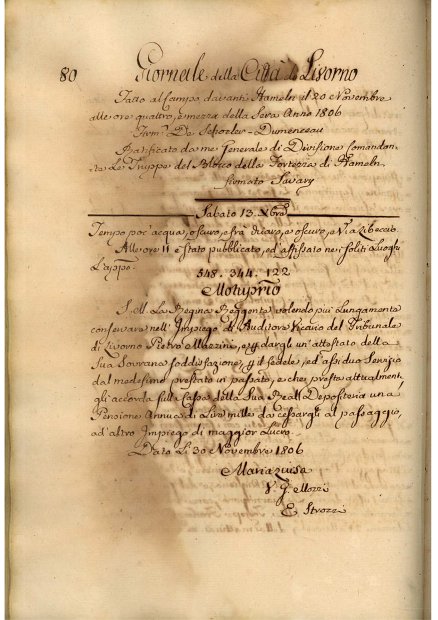 80
Giornale della Città di Livorno
Fatto al Campo davanti Hameln il 20 Novembre
alle ore quattro, e mezza della Sera Anno 1806
Firm: De Schoeler - Dumonceau
Ratificato da me Generale di Divisione Comandan-
te Le Truppe del Bloco della Fortezza di Hameln
firmato Savary
Sabato 13. Xbre
Tempo poc'acqua, oscuro, e frà chiaro, e oscuro, e Via Libeccio
Alle ore 11 è stato pubblicato, ed affissato nei soliti Luoghi
L'appo:
348. 344. 122
Motuprio
S. M. La Regina Reggente volendo più Lungamente
conservare nell'Impiego di Auditore Vicario del Tribunale
di Livorno Pietro Mazzini, e dargli un'attestato della
Sua Sovrana soddisfazione, il fedele, ed assiduo Servizio
dal medesimo prestato in passato, e che presta attualment:
gli accorda sulla Cassa della Sua Reall Depositeria una
Pensione Annua di Lire mille da cessargli al passaggio,
ad'altro Impiego di maggior Lucro.
Dato Li 30 Novembre 1806
Maria Luisa
V. G. Mozzi
E. Strozzi